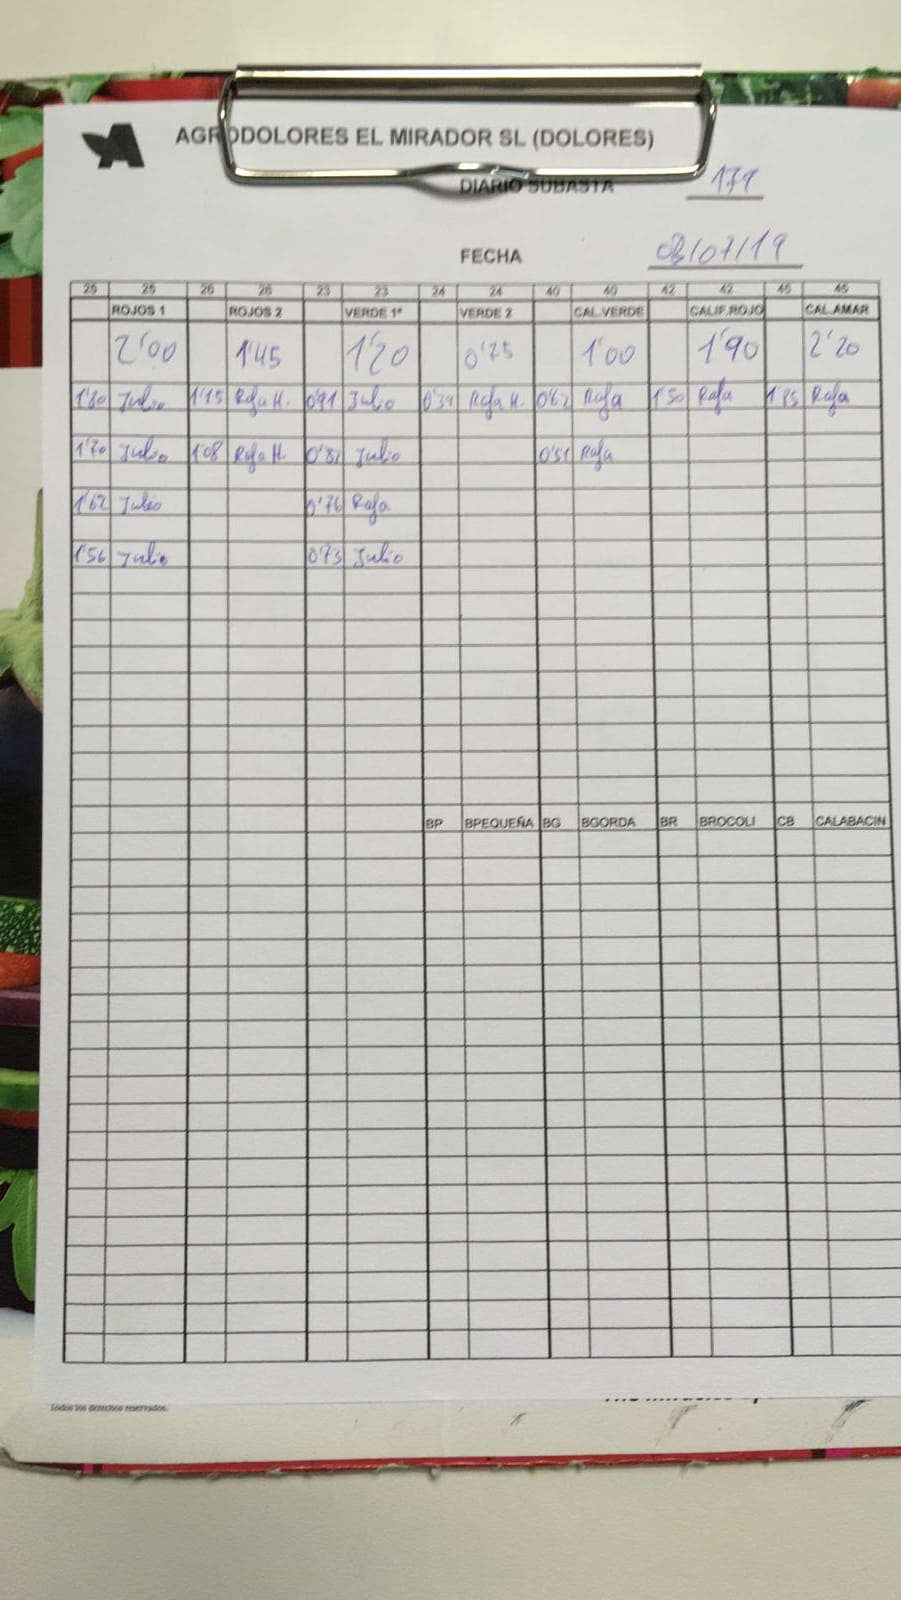 AGRODOLORES EL MIRADOR SL (DOLORES)
DIARIO SUBASTA 179
FECHA 03/07/19
25 25 26 26 23 23 24 24 40 40 42 42 45 45
ROJOS 1 ROJOS 2 VERDE 1ª VERDE 2 CAL.VERDE CALIF.ROJO CAL.AMAR
2'00 1'45 1'20 0'75 1'00 1'90 2'20
1'80 Julio 1'15 Rafa H. 0'91 Julio 0'34 Rafa H. 0'62 Rafa 1'50 Rafa 1'85 Rafa
1'70 Julio 1'08 Rafa H. 0'82 Julio 0'51 Rafa
1'62 Julio 0'76 Rafa
1'56 Julio 0'73 Julio
BP BPEQUEÑA BG BGORDA BR BROCOLI CB CALABACIN
Todos los derechos reservados.